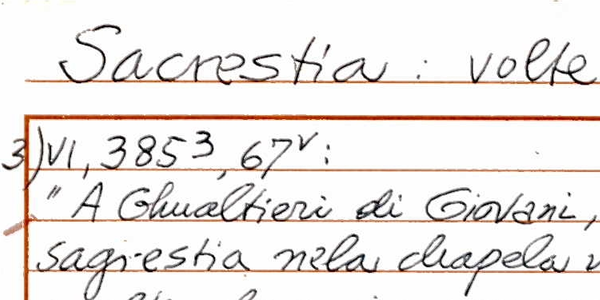 Sacrestia : volte
3) VI, 3853, 67v:
"A Ghualtieri di Giovani,
sagrestia nela chapela